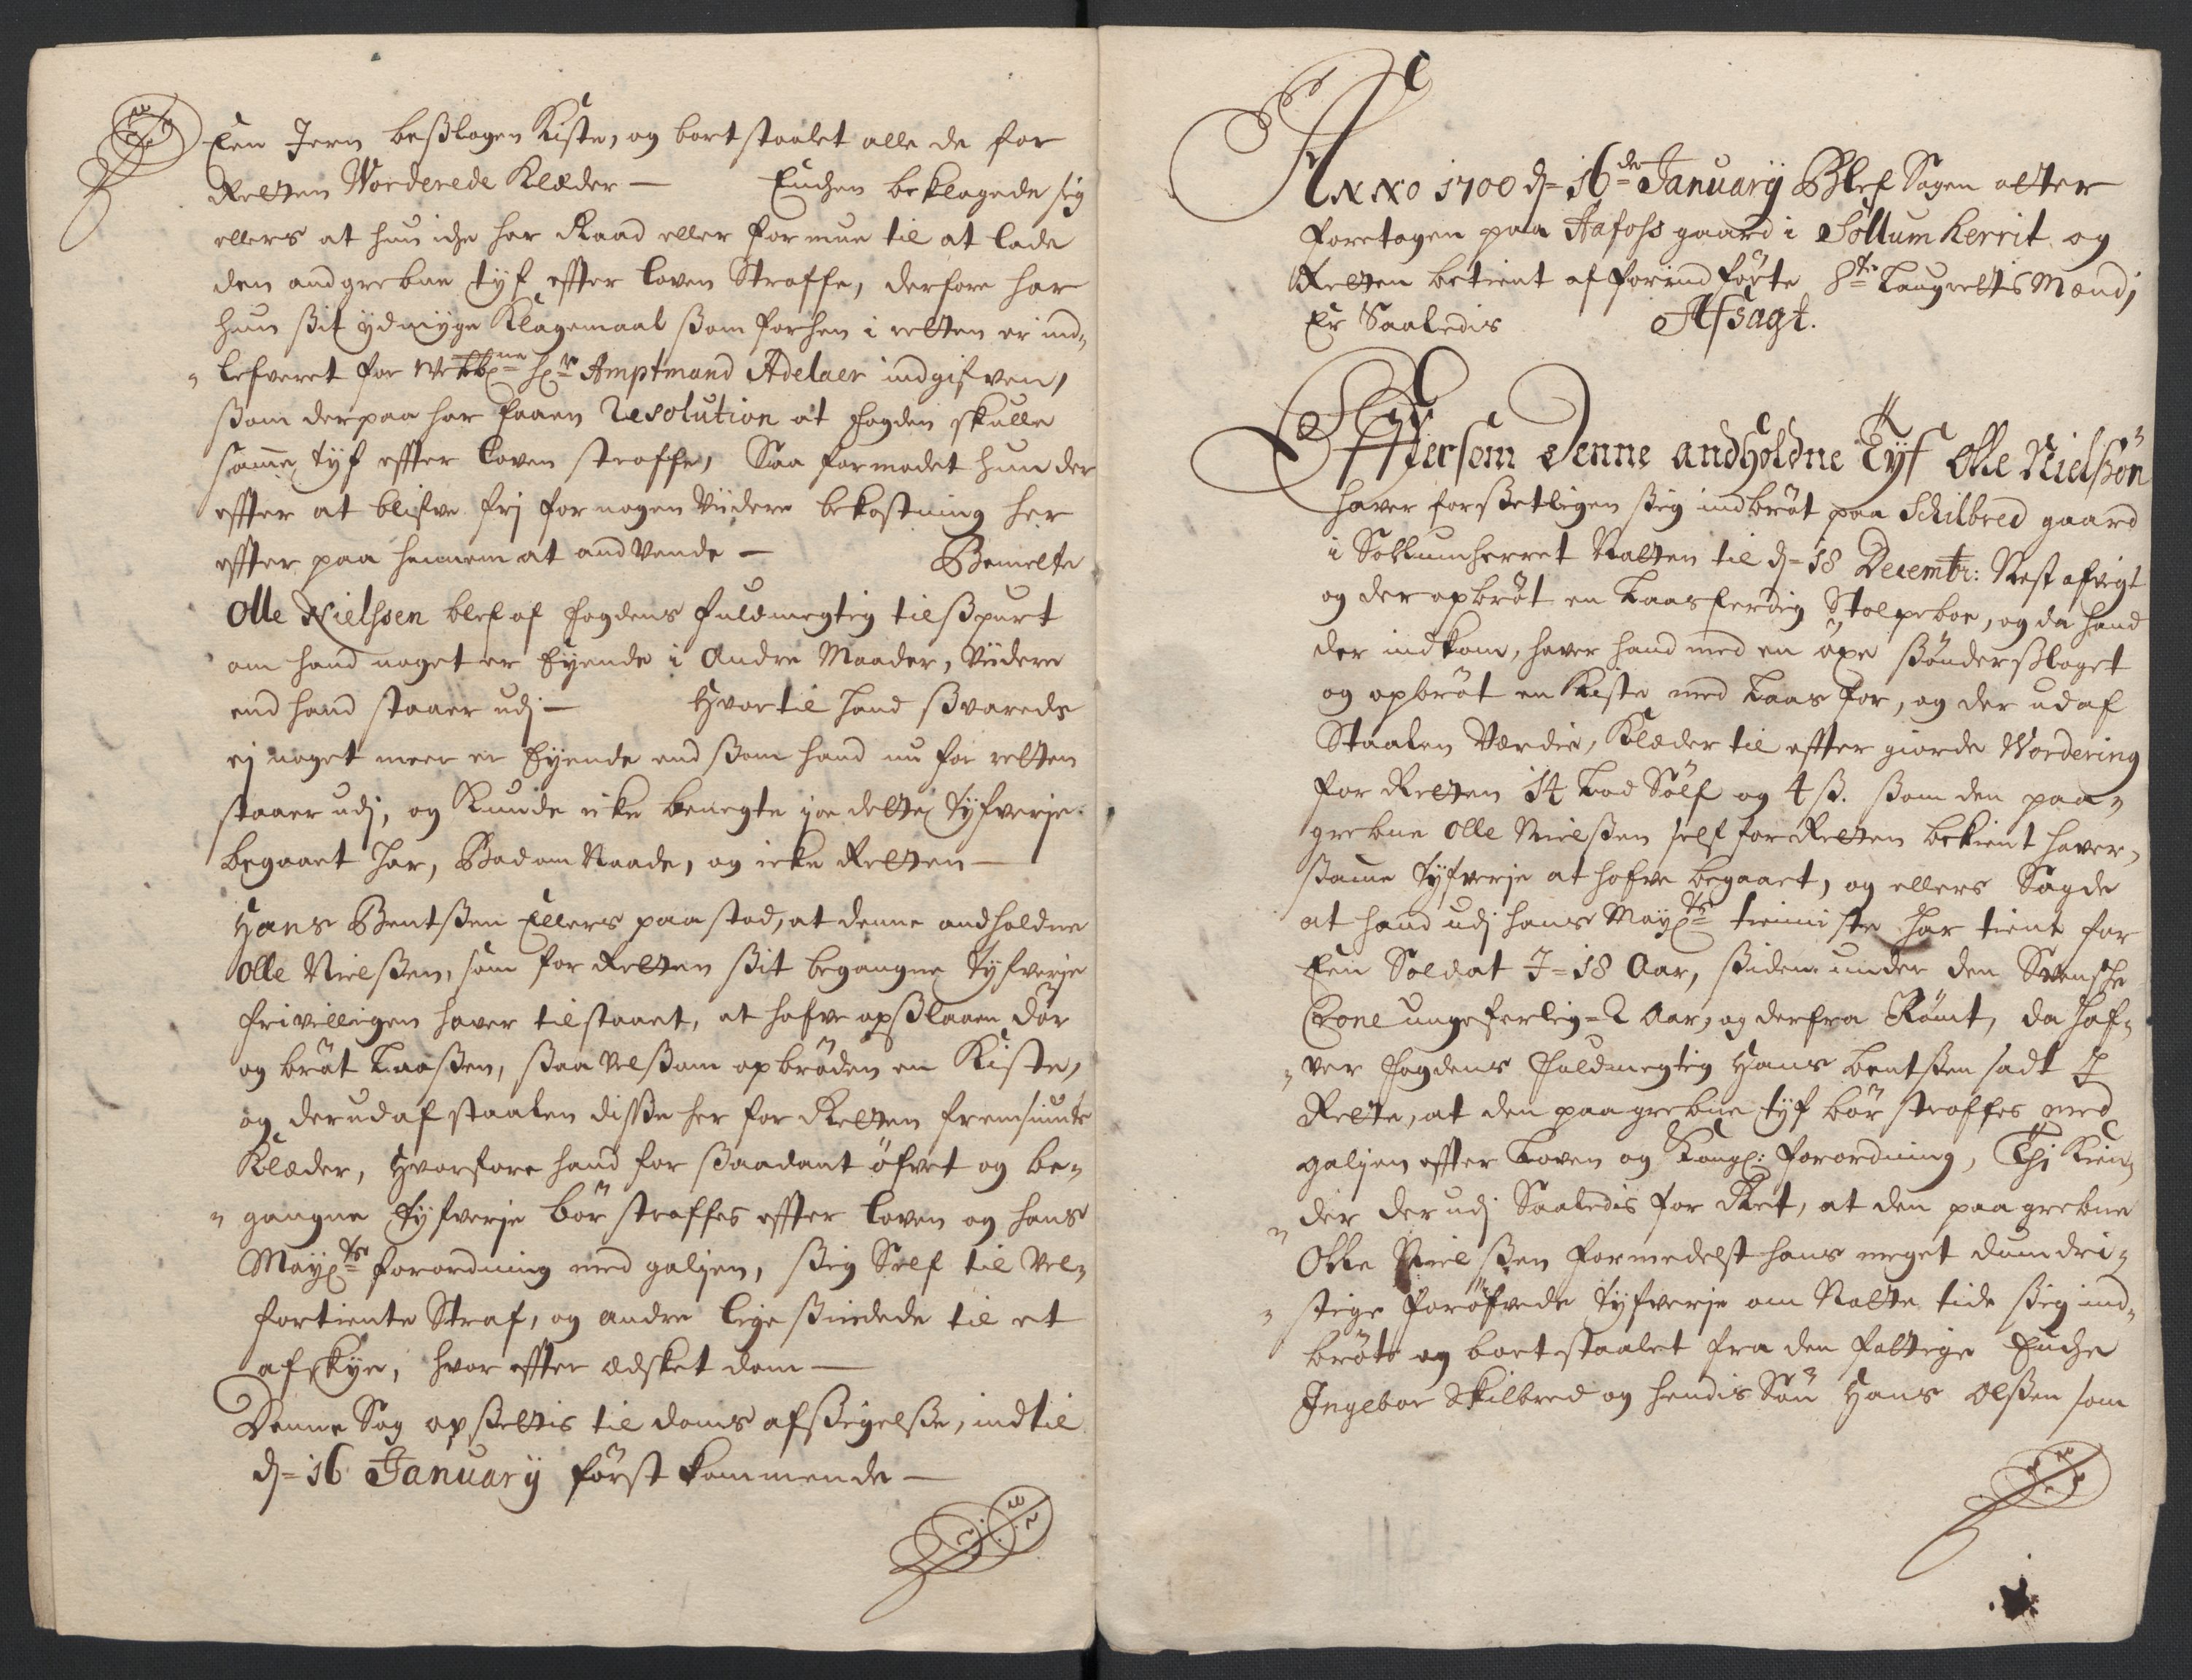 Een Jern beßlagen Kiste, og bortstaalet alle de for
Retten Worderede Klæder — Enchen beklagede sig
ellers at hun iche har Raad eller formue til at lade
den andgrebne tyf effter loven Straffe, derfore har
hun ßit ydmyge Klagemaal ßom forhen i retten er ind,,
,, lefveret for Hr Amptmand Adelaer indgifven,
ßom derpaa har faaen Resolution at fogden skulle
samme tyf effter loven straffe, Saa formodet hun der
effter at blifve frj for nogen Viidere bekostning her
effter paa hannem at andVende — Bemelte
Olle Nielßen blef af fogdens fuldmegtig tilßpurt
om hand noget er Eyende i Andre Maader, Viidere
end hand staaer udj — Hvortil hand ßvarede
ej noget meer er Eyende end ßom hand nu for retten
staaer udj, og Kunde icke benegte joe dette tyfverje
begaaet har, Bad om Naade, og icke Retten —
Hans Bentßen Ellers paastod, at denne andholdne
Olle Nielßen, som for Retten ßit begangne tyfverje
frivilligen haver tilstaaet, at hafve opßlaaen dör
og bröt Laaßen, ßaa velßom opbröden en Kiste,
og derudaf staalen disse her for Retten fremsiunte
Klæder, Hvorfore hand for ßaadant öfvet og be,,
,, gangne tyfverje bör straffes effter loven og hans
Mayts forordning med galjen, ßig Self til Vel,,
fortiente Straf, og andre ligeßindede til et
afskye, hvor effter ædsket dom —
Denne Sag opßettis til doms afßigelße, indtil
d= 16 January först kommende —
Anno 1700 d= 16de January Blef Sagen atter
foretagen paa Aafoss gaard i Söllum herrit og
Retten betient af forindförte 8te Laugrettis Mænd,
Er Saaledis Afsagt.
Efftersom Denne andholdne Tyf Olle Nielßön
haver forßetligen ßig indbröt paa Skilbred gaard
i Sollumherret Natten til d= 18 Decembr: Nest afvigt
og der opbröt en Laasferdig Stolpeboe, og da hand
der indkom, haver hand med en öxe ßönderßlaget
og opbröt en Kiste med Laas for, og der udaf
Staalen Værdie, Klæder til effter giorde Wordering
for Retten 14 Lod Sölf og 4 ß. ßom den paa,,
grebne Olle Nielßen self for Retten bekient haver,,
ßamme tyfverje at hafve begaaet, og ellers Sagde
at hand udj hans Mayts tienniste har tient for
Een Soldat J= 18 Aar, ßiden under den Svensche
Crone ungeferlig= 2 Aar, og derfra Römt, da haf,,
,, ver fogdens fuldmegtig Hans bentßen sadt J
Rette, at den paagrebne tyf bör straffes med
galjen effter Loven og Kongl: forordning, Thi Kien,,
,, der derudj Saaledis for Ret, at den paagrebne
Olle Nielßen formedelst hans meget dumdri,,
,, stige foröfvede tyfverje om Natte tide ßig ind,,
bröt og bortstaalet fra den fattige Enche
Ingebor Skilbred og hendis Sön Hans Olßen som